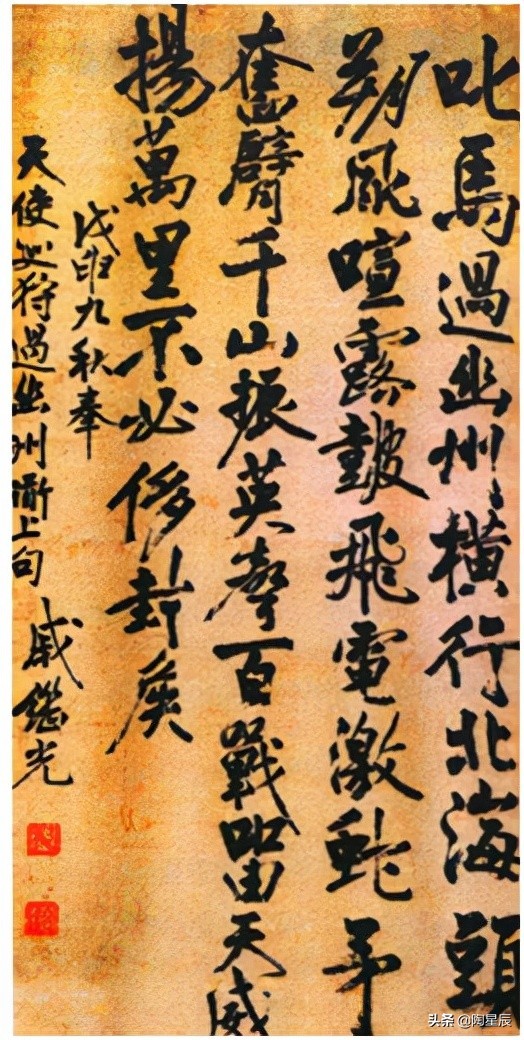 叱馬過幽州橫行北海頭
朔風喧露皷飛電激虵矛
奮臂千山振英聲百戰畱天威
揚萬里不必侈封侯
戊申九秋奉
天使巡狩過幽州上句 戚繼光
头条 @陶星辰